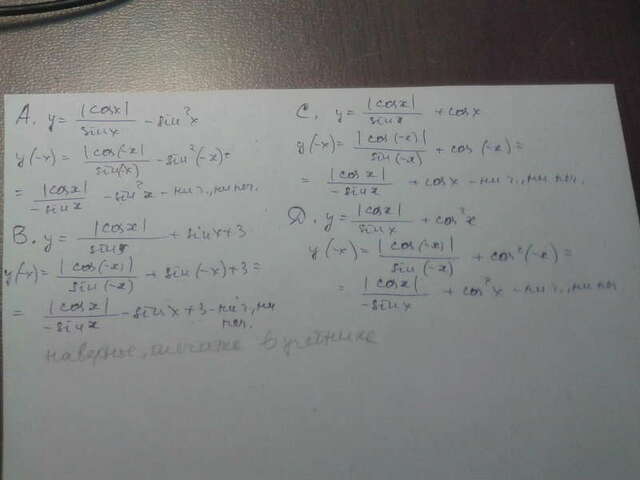 A. y = |cosx| / sinx - sin²x
y(-x) = |cos(-x)| / sin(-x) - sin²(-x) =
= |cosx| / -sinx - sin²x - ни ч., ни неч.
B. y = |cosx| / sinx + sinx+3
y(-x) = |cos(-x)| / sin(-x) + sin(-x)+3 =
= |cosx| / -sinx - sinx+3 - ни ч., ни неч.
C. y = |cosx| / sinx + cosx
y(-x) = |cos(-x)| / sin(-x) + cos(-x) =
= |cosx| / -sinx + cosx - ни ч., ни неч.
D. y = |cosx| / sinx + cos²x
y(-x) = |cos(-x)| / sin(-x) + cos²(-x) =
= |cosx| / -sinx + cos²x - ни ч., ни неч
наверное, в учебнике